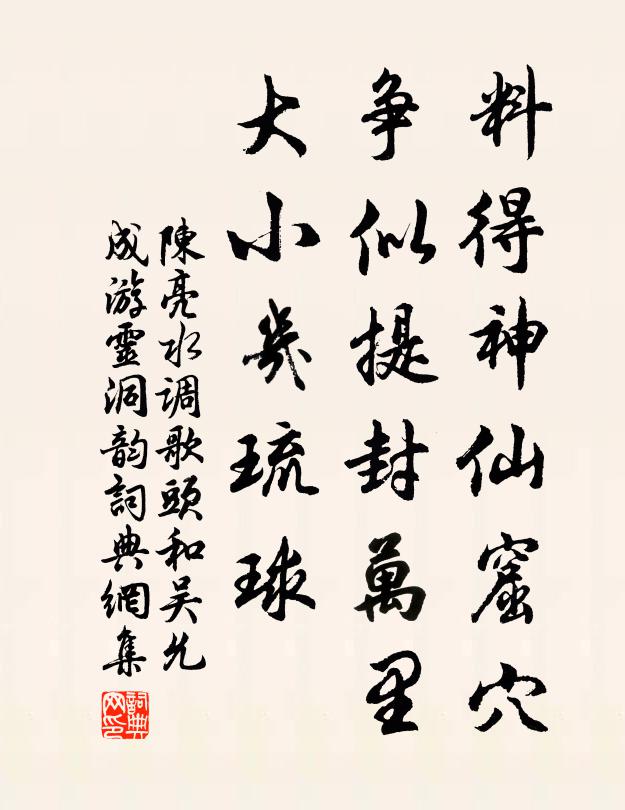 料得神仙窟穴
争似提封萬里
大小幾琉球
陳亮水調歌頭和吴允
成游靈洞韵詞典網集
詞典
网印